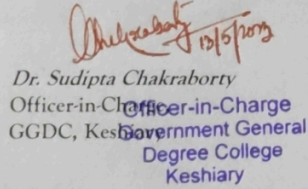 13/5/2023
Dr. Sudipta Chakraborty
Officer-in-Charge
GGDC, Keshiary
Officer-in-Charge
Government General
Degree College
Keshiary